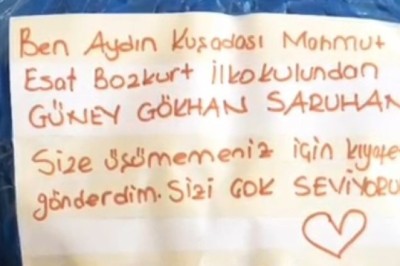 Ben Aydın Kuşadası Mahmut
Esat Bozkurt İlkokulundan
GÜNEY GÖKHAN SARUHAN
Size üşümemeniz için kıyafe
gönderdim. Sizi ÇOK SEVİYORU